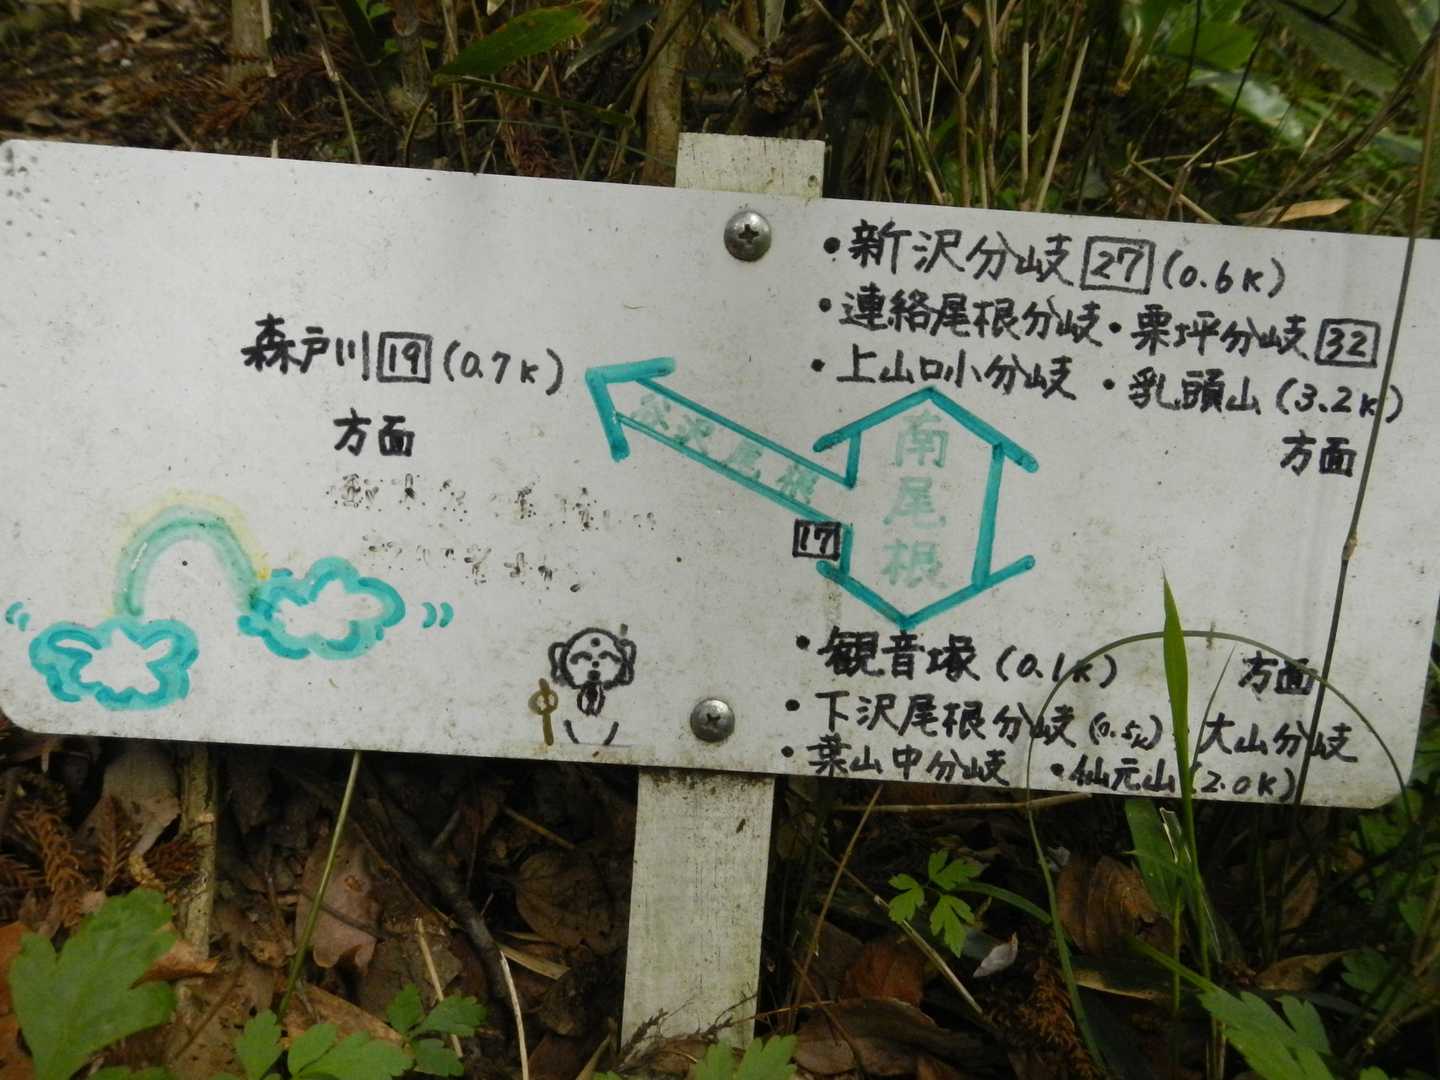 森戸川 19 (0.7K)
方面
・新沢分岐 27 (0.6K)
・連絡尾根分岐・栗坪分岐 32
・上山口小分岐 ・乳頭山 (3.2K)
方面
谷沢尾根
南尾根
17
・観音塚 (0.1K) 方面
・下沢尾根分岐 (0.5K) ・大山分岐
・葉山中分岐 ・仙元山 (2.0K)